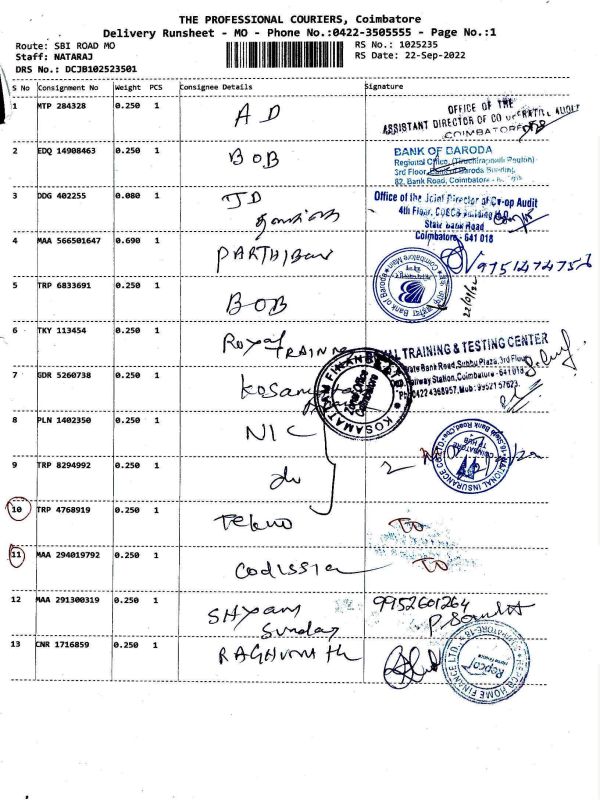 THE PROFESSIONAL COURIERS, Coimbatore
Delivery Runsheet - MO - Phone No.:0422-3505555 - Page No.:1
Route: SBI ROAD MO
RS No.: 1025235
Staff: NATARAJ
RS Date: 22-Sep-2022
DRS No.: DCJB102523501
S No Consignment No Weight PCS Consignee Details Signature
1 MTP 284328 0.250 1 AD
OFFICE OF THE
ASSISTANT DIRECTOR OF CO OPERATIVE AUDIT
COIMBATORE
2 EDQ 14908463 0.250 1 BOB
BANK OF BARODA
Regional Office, (Tiruchirappalli Region)
3rd Floor, Bank of Baroda Building,
82, Bank Road, Coimbatore -
3 DDG 402255 0.080 1 JD
Office of the Joint Director of Co-op Audit
4th Floor,
State Bank Road
Coimbatore - 641 018
4 MAA 566501647 0.690 1 PARTHIBAN
9751474752
Bank of Baroda
Coimbatore Main
5 TRP 6833691 0.250 1 BOB
22/09/22
6 TKY 113454 0.250 1 Royal TRAINING
TRAINING & TESTING CENTER
State Bank Road, Subbu Plaza, 3rd Floor
Railway Station, Coimbatore - 641 018
Ph: 0422 4368957, Mob: 99521 57623.
7 GDR 5260738 0.250 1 Kosamattam
KOSAMATTAM FINANCE
Zonal Office
Coimbatore
8 PLN 1402350 0.250 1 NIC
NATIONAL INSURANCE CO LTD
9 TRP 8294992 0.250 1 do
2
10 TRP 4768919 0.250 1 Tekno TO
11 MAA 294019792 0.250 1 Codissia TO
12 MAA 291300319 0.250 1 SHyam
Sundar
9952601264
13 CNR 1716859 0.250 1 RAGHUNATH
REPCO HOME FINANCE LTD.
Repco
Home Finance